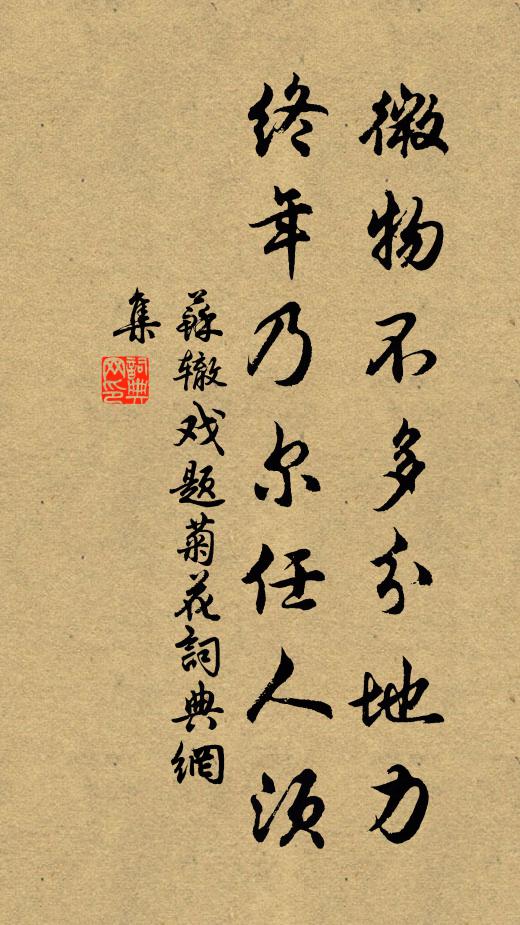 微物不多分地力
终年乃尔任人须
蘇辙戏题菊花詞典網
集
詞典
网印